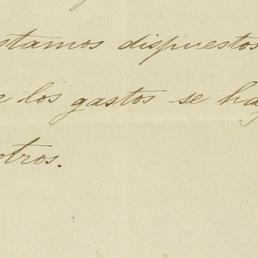 stamos dispuestos
e los gastos se ha
otros.